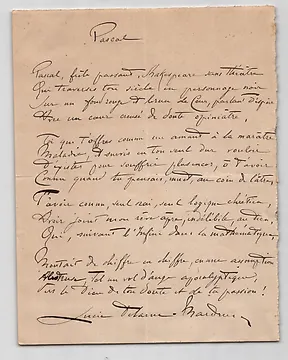 Pascal
Pascal, frêle passant, Shakespeare sans théâtre
Qui traverses ton siècle en personnage noir
Sur un fond rouge d'
Avec un cœur causé de doute opiniâtre,
Toi qui t'offres comme un amant à la marâtre
Maladie, et
D'exister pour souffrir plus encor, ô t'avoir
Connu quand tu pensais, muet, au coin de l'âtre,
T'avoir connu, seul, seul logique chrétien,
Avoir joint mon rêve âpre, indélébile, au tien,
Qui, suivant l'Infini dans la mathématique,
Montait de chiffre en chiffre, comme assomption
tel un vol d'ange apocalyptique,
Vers le Dieu de ton doute et de ta passion !
Lucie Delarue-Mardrus